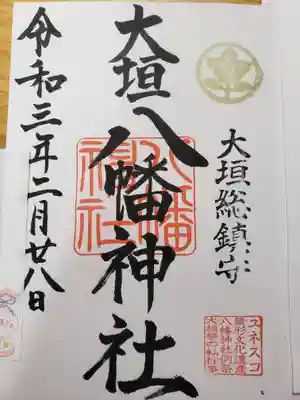 大垣総鎮守
ユネスコ
無形文化遺産
八幡神社例祭
大垣祭の軕行事
大垣八幡神社
八幡
神社
令和三年二月廿八日